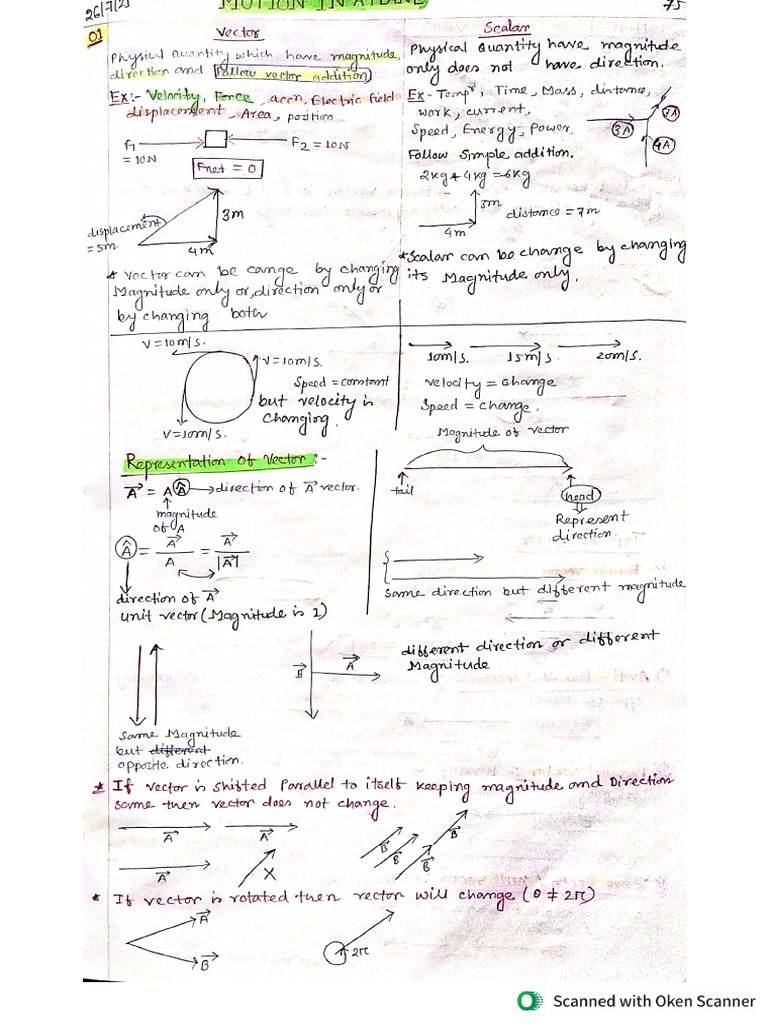 26/7/21
MOTION IN A PLANE
75
01
Vector
Physical Quantity which have magnitude,
direction and follow vector addition
Ex:- Velocity, Force, accn, Electric field
displacement, Area, position
F1 = 10N
F2 = 10N
Fnet = 0
displacement = 5m
3m
4m
* Vector can be cange by changing
Magnitude only or, direction only or
by changing both
Scalar
Physical Quantity have magnitude
only does not have direction.
Ex- Tempr, Time, Mass, distance,
work, current,
Speed, Energy, Power,
Follow Simple addition.
2kg + 4kg = 6kg
3A
7A
4A
3m
4m
distance = 7m
* Scalar can be change by changing
its Magnitude only.
V = 10m/s.
V = 10m/s.
Speed = constant
but velocity is
changing.
V = 10m/s.
10m/s. 15m/s. 20m/s.
velocity = change
Speed = change.
Representation of Vector:-
A⃗ = A Â → direction of A⃗ vector.
magnitude
of A
Â = A⃗/A = A⃗/|A⃗|
direction of A⃗
unit vector (Magnitude is 1)
Magnitude of vector
tail
head
Represent
direction.
Same direction but different magnitude
Same Magnitude
but different
opposite direction.
B⃗
A⃗
different direction or different
Magnitude
* If vector is shifted Parallel to itself keeping magnitude and Direction
same then vector does not change.
A⃗ A⃗
A⃗ X
B⃗ B⃗ B⃗ B⃗
* If vector is rotated then vector will change (θ ≠ 2π)
A⃗
B⃗
2π
Scanned with Oken Scanner